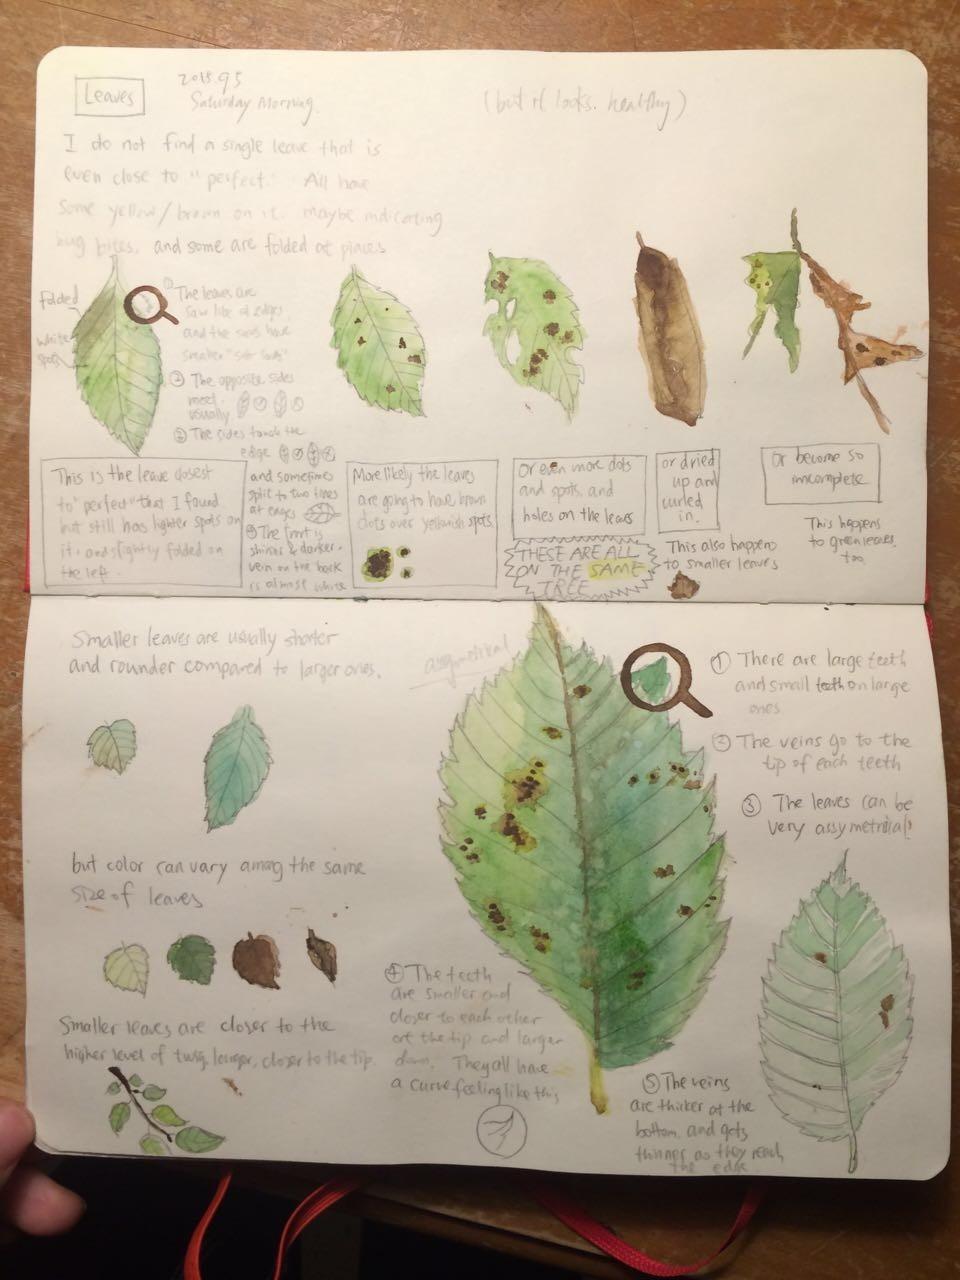 Leaves
2015.9.5
Saturday Morning.
(but it looks. healthy)
I do not find a single leave that is
even close to "perfect." All have
some yellow/brown on it. maybe indicating
bug bites. and some are folded at places
folded
white
spots
① The leaves are
saw like at edges,
and the saws have
smaller "saw saws"
② The opposite sides
meet.
usually
③ The sides touch the
edge
and sometimes
split to two times
at edges
④ The front is
shinier & darker.
vein on the back
is almost white
This is the leave closest
to "perfect" that I found
but still has lighter spots on
it. and slightly folded on
the left.
More likely the leaves
are going to have brown
dots over yellowish spots.
Or even more dots
and spots. and
holes on the leaves
THESE ARE ALL
ON THE SAME
TREE
or dried
up and
curled
in.
This also happens
to smaller leaves
Or become so
imcomplete
This happens
to green leaves
too.
Smaller leaves are usually shorter
and rounder compared to larger ones.
asymetrical
① There are large teeth
and small teeth on large
ones
② The veins go to the
tip of each teeth
③ The leaves can be
very assymetrical!
but color can vary amang the same
size of leaves
Smaller leaves are closer to the
higher level of twig longer, closer to the tip.
④ The teeth
are smaller and
closer to each other
at the tip and larger
down. They all have
a curve feeling like this
⑤ The veins
are thicker at the
bottom. and gets
thinner as they reach
the edge.